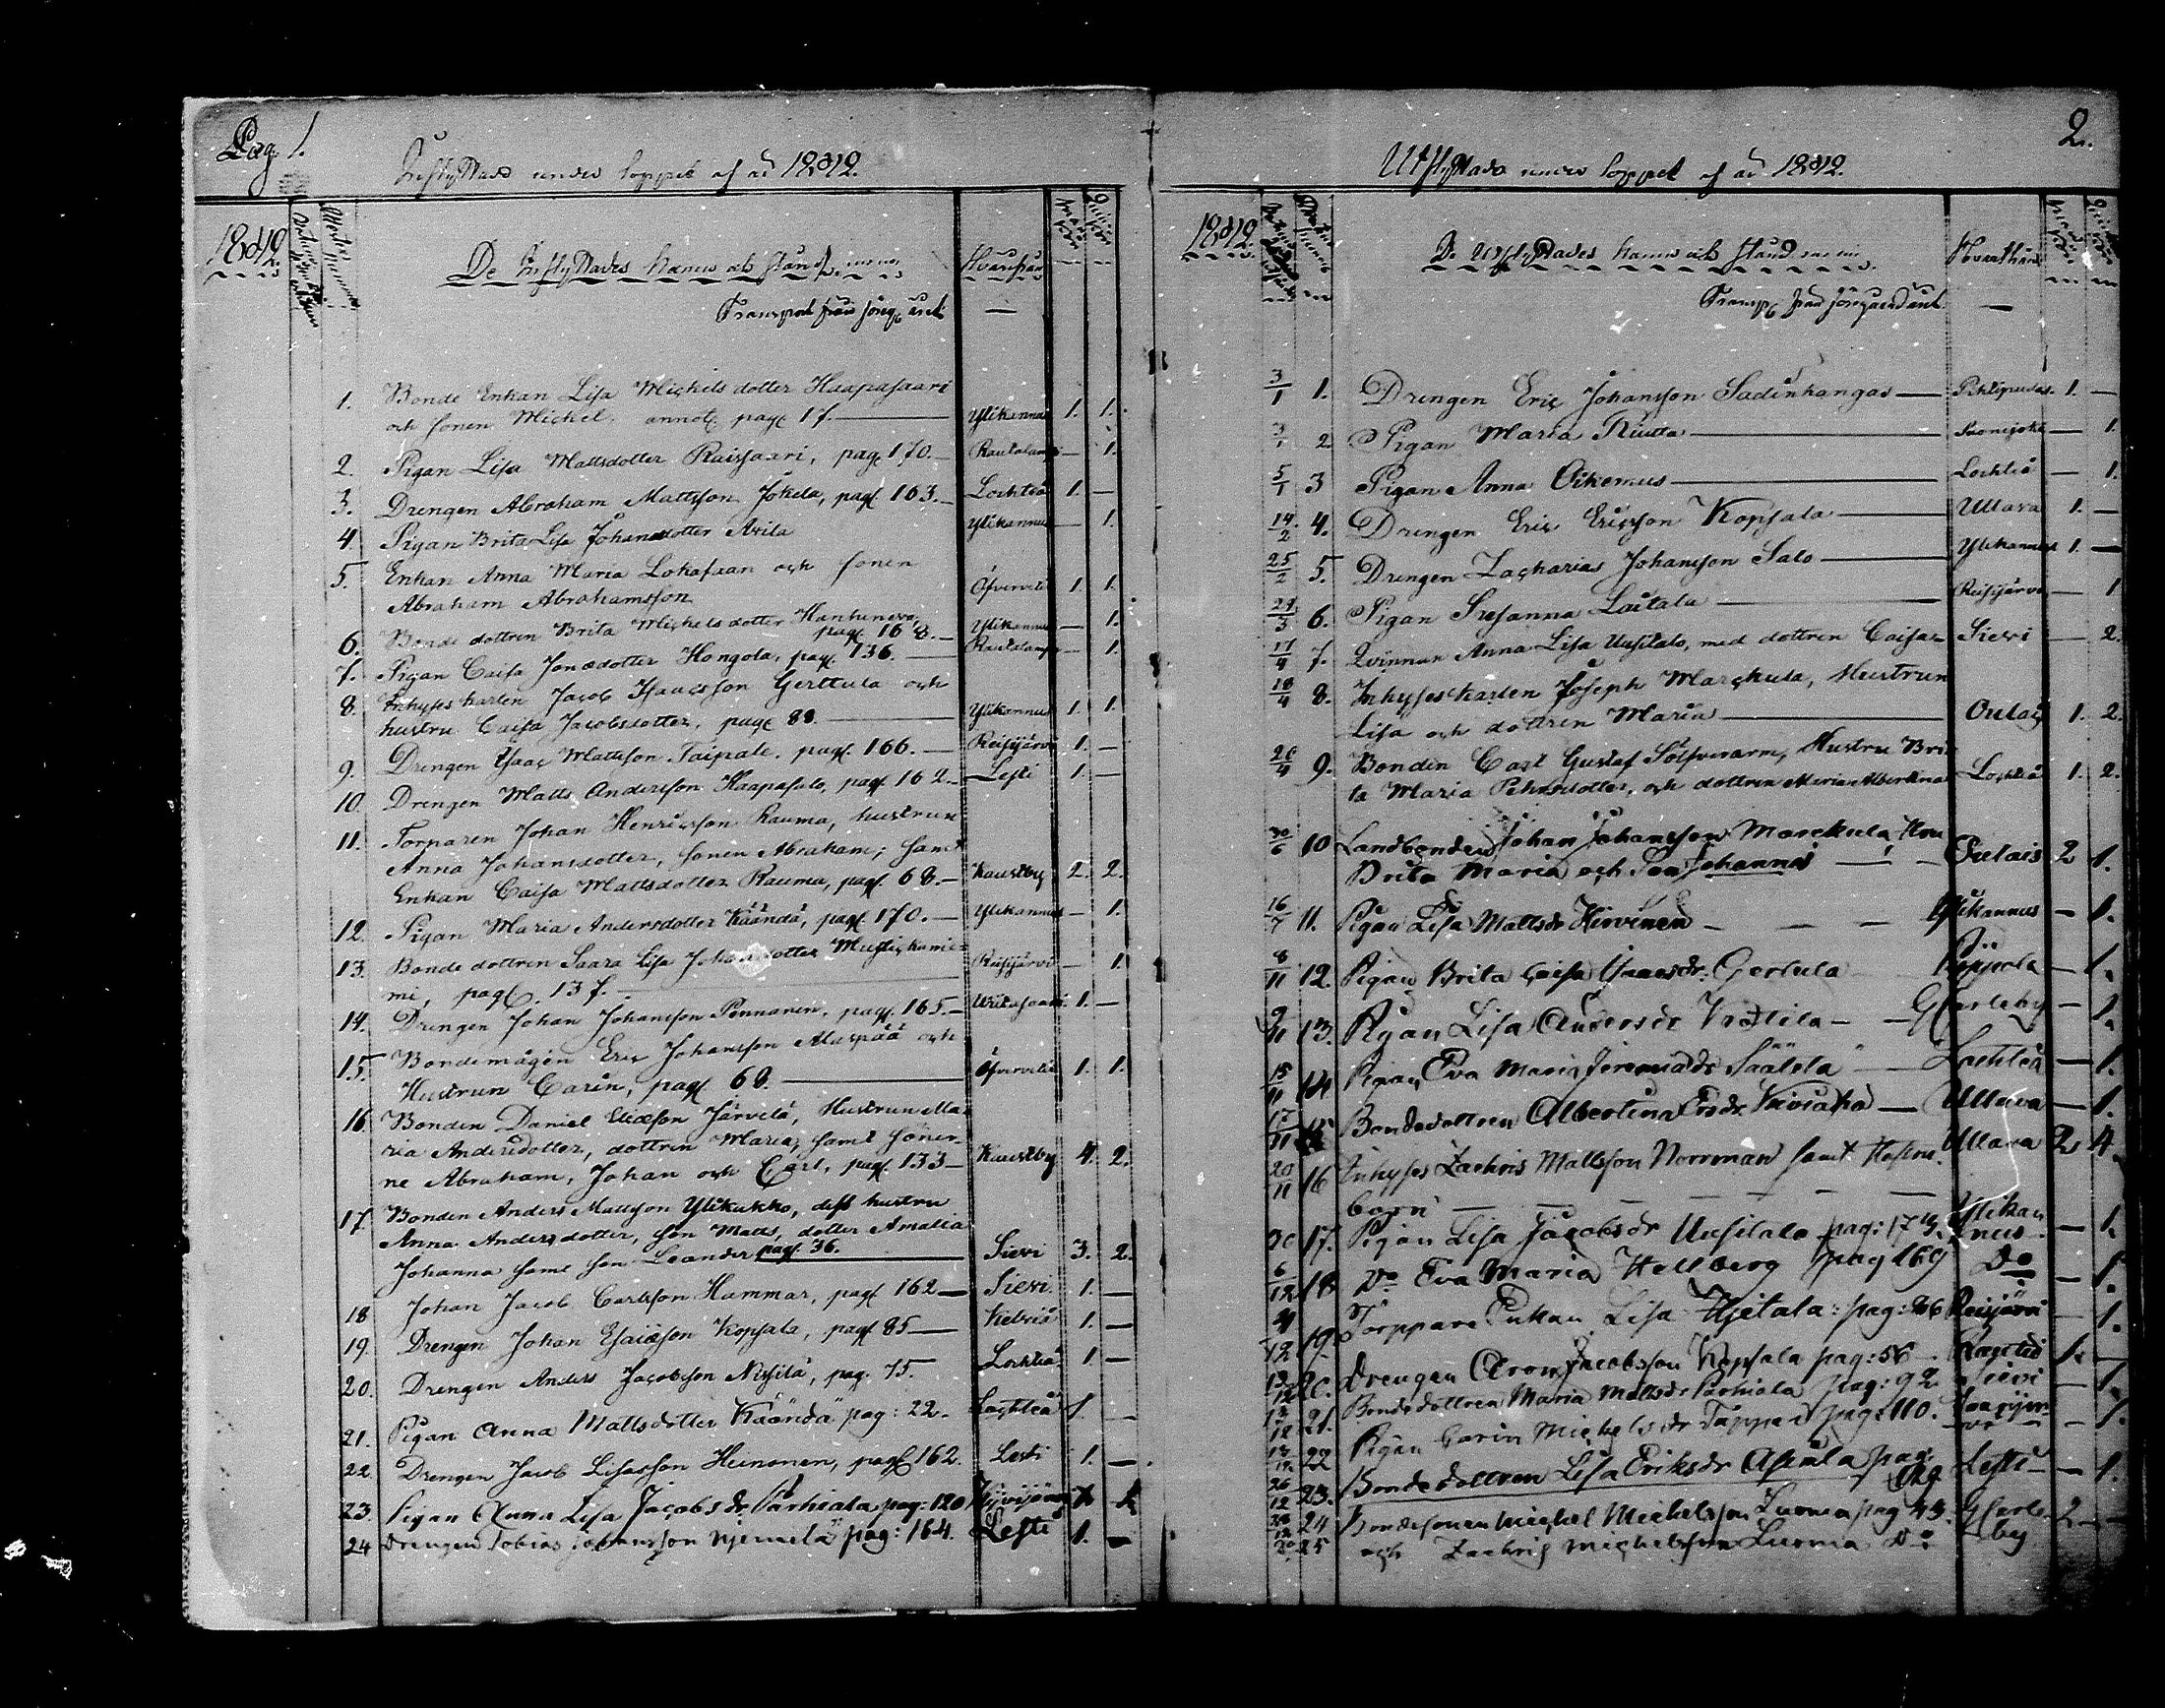 Pag. 1.
Inflyttade under loppet af år 1842.
1842.
De Inflyttades Namn och stånd.
Hvarifrån
Mankön
Qvinkön
Transport från föreg. året —
1. Bonde Enkan Lisa Michelsdotter Haapasaari
och sonen Michel. annot. pag. 17. — Ylikannus 1. 1.
2. Pigan Lisa Mattsdotter Raisjaari, pag. 170. — Rautalampi — 1.
3. Drengen Abraham Mattsson Jokela, pag. 163. — Lochteå 1. —
4. Pigan Brita Lisa Johansdotter Avila Ylikannus — 1.
5. Enkan Anna Maria Lokasaari och sonen
Abraham Abrahamsson Öfvervetil 1. 1.
6. Bonde dottren Brita Michelsdotter Hanhineva,
pag. 168. — Ylikannus — 1.
7. Pigan Caisa Jonædotter Hongola, pag. 136. — Rautalampi — 1.
8. Inhyses karlen Jacob Isaacsson Gerttula och
hustru Caisa Jacobsdotter, pag. 88. — Ylikannus 1. 1.
9. Drengen Isaac Mattsson Taipale, pag. 166. — Reisjärvi 1. —
10. Drengen Matts Andersson Haapasalo, pag. 162. — Lesti 1. —
11. Torparen Johan Henricsson Rauma, hustrun
Anna Johansdotter, sonen Abraham; samt
Enkan Caisa Mattsdotter Rauma, pag. 68. — Kaustby 2. 2.
12. Pigan Maria Andersdotter Käändä, pag. 170. — Ylikannus — 1.
13. Bonde dottren Saara Lisa Johansdotter Mustikanie-
mi, pag. 137. — Reisjärvi — 1.
14. Drengen Johan Johansson Pennanen, pag. 165. — 1. —
15. Bondemågen Eric Johansson Alaspää och
Hustrun Carin, pag. 68. — Öfvervetil 1. 1.
16. Bonden Daniel Eliæson Järvelä, Hustrun Ma-
ria Andersdotter, dottren Maria, samt söner-
ne Abraham, Johan och Carl, pag. 133 — Kaustby 4. 2.
17. Bonden Anders Mattsson Ylikukko, dess hustru
Anna Andersdotter, son Matts, dotter Amalia
Johanna samt son Leander pag. 36. — Sievi 3. 2.
18 Johan Jacob Carlsson Hammar, pag. 162 — Sievi. 1. —
19. Drengen Johan Esaiæson Kopsala, pag. 85 — Kelviå 1. —
20. Drengen Anders Jacobsson Nissilä, pag. 75. Lochteå 1. —
21. Pigan Anna Mattsdotter Käändä pag: 22. Lochteå 1. —
22. Drengen Jacob Lisasson Heinonen, pag. 162. Lesti 1. —
23. Pigan Anna Lisa Jacobsdr Parhiala pag: 120
24 Drengen Tobias Johansson Niemelä pag: 164. Lesti 1. —
2.
Utflyttade under loppet af år 1842.
1842.
De Utflyttades Namn och stånd
Hvarthän
Mankön
Qvinkön
Transp. från föregående året —
3/1 1. Drengen Eric Johansson Sadinkangas — Pihtipudas. 1. —
3/1 2 Pigan Maria Riutta — — 1.
5/1 3 Pigan Anna Oikemus — Lochteå — 1.
14/2 4. Drengen Eric Ericsson Kopsala — Ullava 1. —
25/2 5. Drengen Zacharias Johansson Salo — Ylikannus 1. —
24/3 6. Pigan Susanna Laitala — Reisjärvi — 1
17/4 7. Qvinnan Anna Lisa Uusitalo, med dottren Caisa — Sievi — 2.
18/4 8. Inhyseskarlen Joseph Marckula, Hustrun
Lisa och dottren Maria — Oulais 1. 2.
20/4 9. Bonden Carl Gustaf Sölfverarm, Hustru Bri-
ta Maria Pehrsdotter, och dottren Maria Albertina Lochteå 1. 2.
30/6 10 Landbonden Johan Johansson Marckula, Hru
Brita Maria och Son Johannes — Oulais 2 1.
16/7 11. Pigan Lisa Mattsdr Hirvinen — Ylikannus — 1.
8/11 12. Pigan Brita Caisa Isaacsdr. Gertula — 1.
9/11 13. Pigan Lisa Andersdr — G Carleby — 1.
15/11 14 Pigan Eva Maria Jeremiædr Säälelä — Lochteå — 1.
17/11 15 Bondedottren Albertina Ersdr Kiviaho — Ullava — 1.
20/11 16 Inhyses Zachris Mattsson Norrman samt Hustru.
barn — Ullava 2 4.
30 17. Pigan Lisa Jacobsdr Uusitalo pag: 175. Ylikan
nus — 1.
6/12 18 Do Eva Maria Hellberg pag 169 Do — 1.
9/12 19. Torppare Enkan Lisa pag: 26 Reisjärvi — 1.
20. Drengen Aron Jacobsson Kopsala pag: 56 1. —
21. Bondedottren Maria Mattsdr Parhiala pag: 92 Sievi — 1.
22 Pigan Carin Michelsdr Tappar pag: 110. — 1.
26/12 23. Bondedottren Lisa Eriksdr Asiala pag: Lesti — 1.
24 Bondesonen Michel Michelsson Luoma pag 43. G Carle- 2 —
25 och Zachris Michelsson Luoma Do by